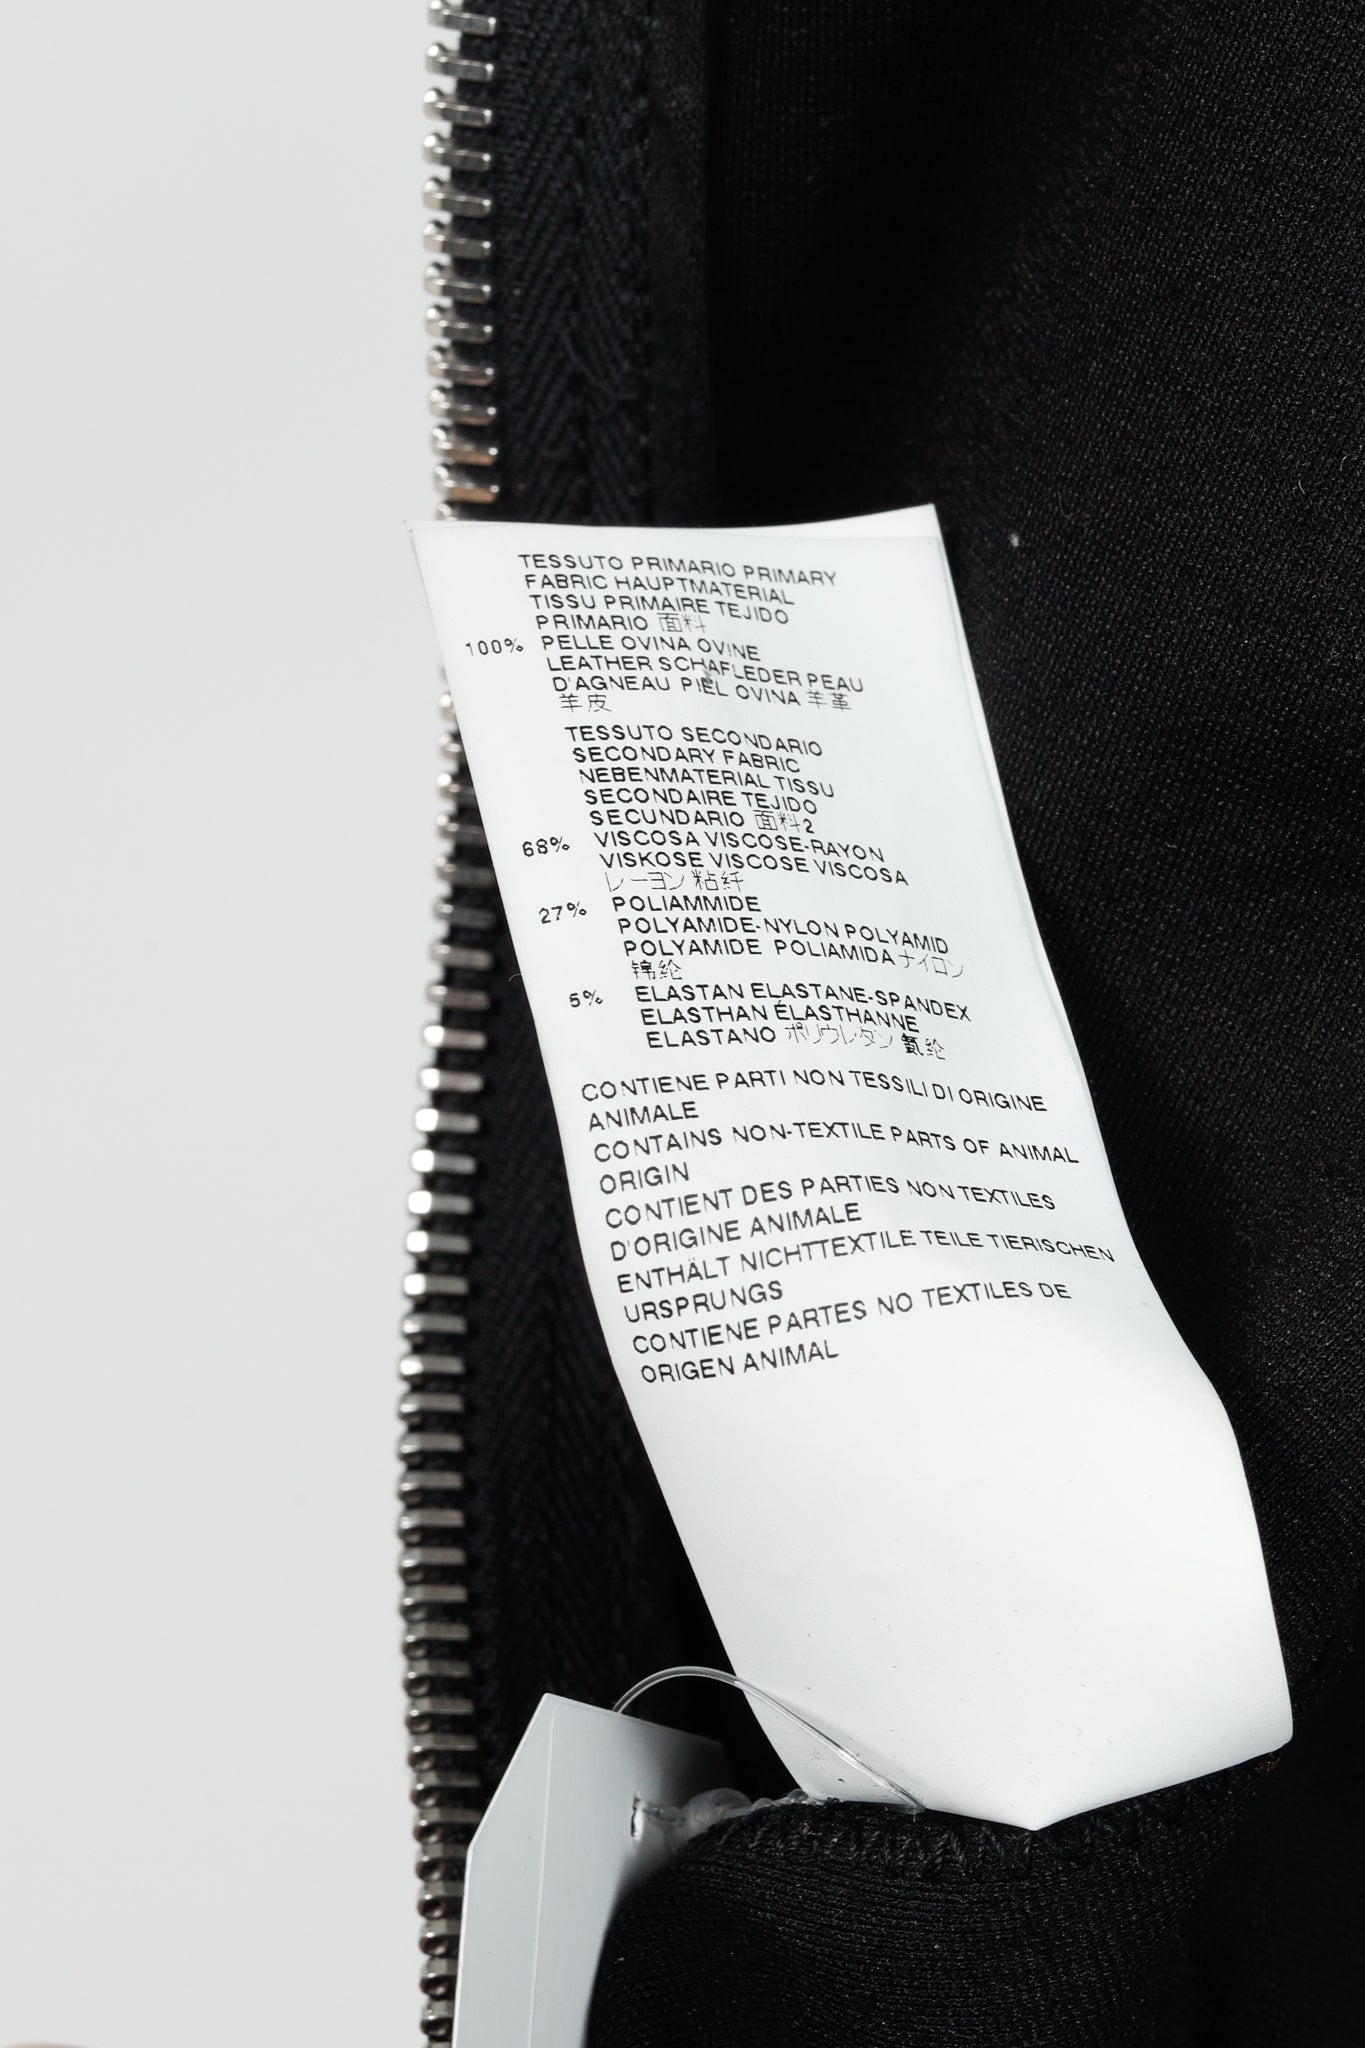 TESSUTO PRIMARIO PRIMARY
FABRIC HAUPTMATERIAL
TISSU PRIMAIRE TEJIDO
PRIMARIO 面料
100% PELLE OVINA OVINE
LEATHER SCHAFLEDER PEAU
D'AGNEAU PIEL OVINA 羊革
羊皮
TESSUTO SECONDARIO
SECONDARY FABRIC
NEBENMATERIAL TISSU
SECONDAIRE TEJIDO
SECUNDARIO 面料2
68% VISCOSA VISCOSE-RAYON
VISKOSE VISCOSE VISCOSA
レーヨン 粘纤
27% POLIAMMIDE
POLYAMIDE-NYLON POLYAMID
POLYAMIDE POLIAMIDA ナイロン
锦纶
5% ELASTAN ELASTANE-SPANDEX
ELASTHAN ÉLASTHANNE
ELASTANO ポリウレタン 氨纶
CONTIENE PARTI NON TESSILI DI ORIGINE
ANIMALE
CONTAINS NON-TEXTILE PARTS OF ANIMAL
ORIGIN
CONTIENT DES PARTIES NON TEXTILES
D'ORIGINE ANIMALE
ENTHÄLT NICHTTEXTILE TEILE TIERISCHEN
URSPRUNGS
CONTIENE PARTES NO TEXTILES DE
ORIGEN ANIMAL